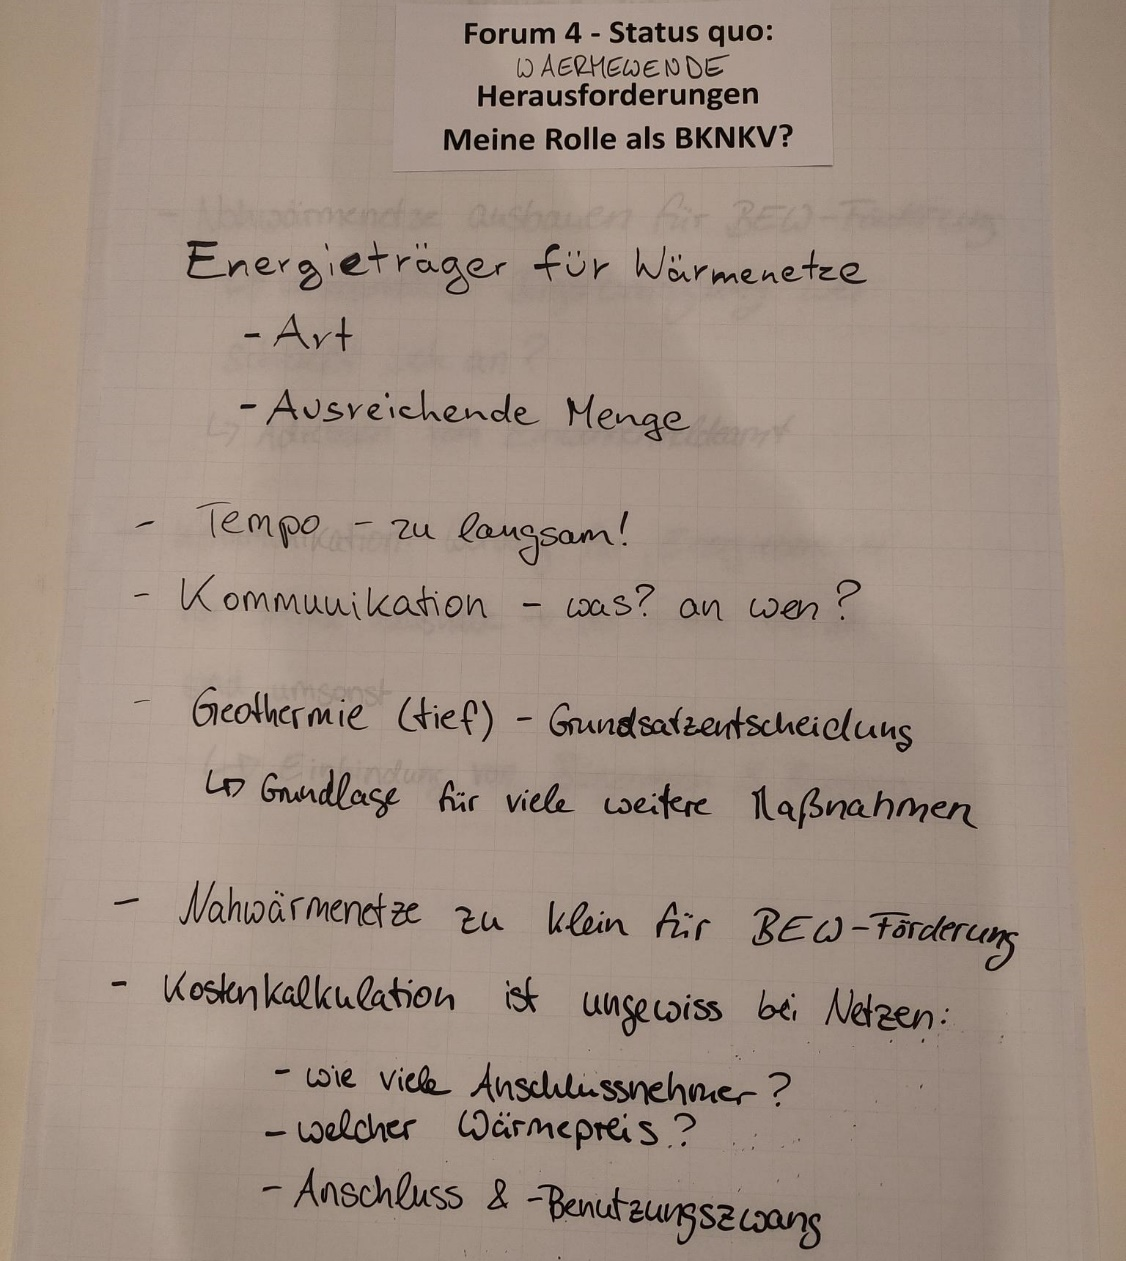 Forum 4 - Status quo:
WAERMEWENDE
Herausforderungen
Meine Rolle als BKNKV?
Energieträger für Wärmenetze
- Art
- Ausreichende Menge
- Tempo - zu langsam!
- Kommunikation - was? an wen?
- Geothermie (tief) - Grundsatzentscheidung
↳ Grundlage für viele weitere Maßnahmen
- Nahwärmenetze zu klein für BEW-Förderung
- Kostenkalkulation ist ungewiss bei Netzen:
- wie viele Anschlussnehmer?
- welcher Wärmepreis?
- Anschluss & -Benutzungszwang